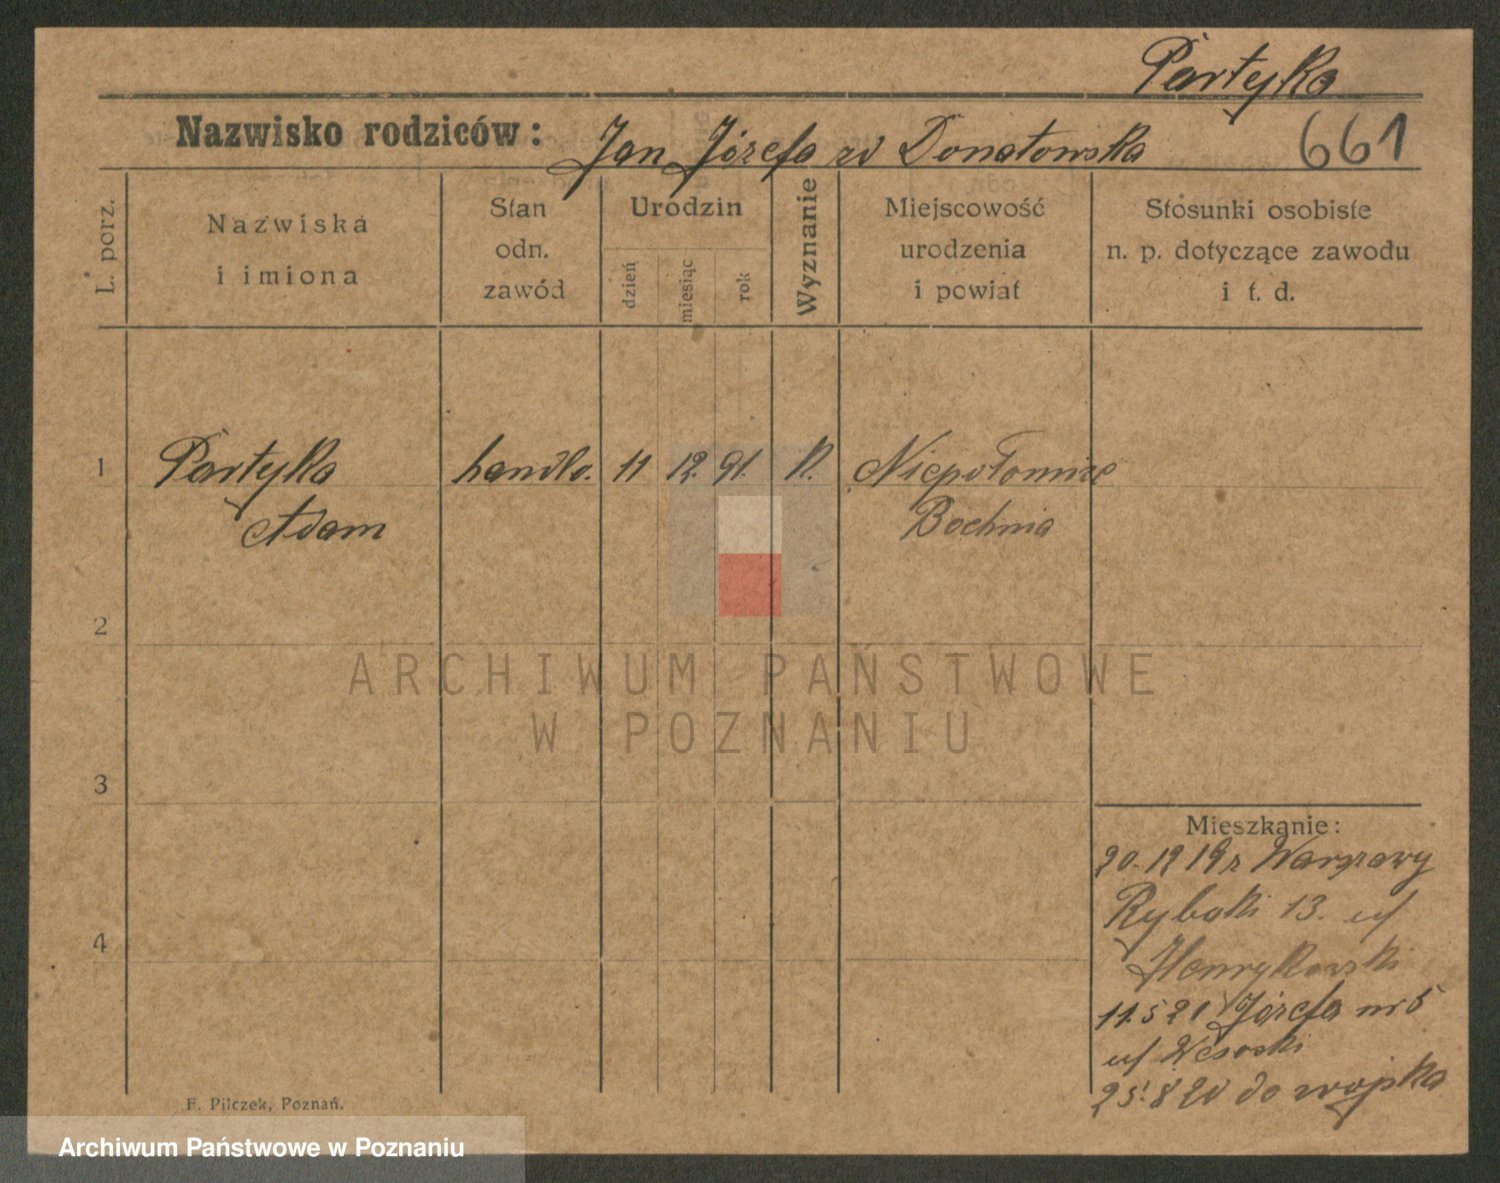 Partyka
Nazwisko rodziców: Jan Józefa zd Donatowska 661
L. porz.
Nazwiska
i imiona
Stan
odn.
zawód
Urodzin
dzień
miesiąc
rok
Wyznanie
Miejscowość
urodzenia
i powiat
Stosunki osobiste
n. p. dotyczące zawodu
i t. d.
1 Partyka handlo. 11 12. 91. K. Niepołomice
Adam Bochnia
2
3
4
ARCHIWUM PAŃSTWOWE
W POZNANIU
Mieszkanie:
20.12 19 z Warszawy
Rybaki 13. u/
Henrykowski
11.5 20 Józefa nr 5
u/
25.8 20 do wojska
F. Pilczek, Poznań.
Archiwum Państwowe w Poznaniu